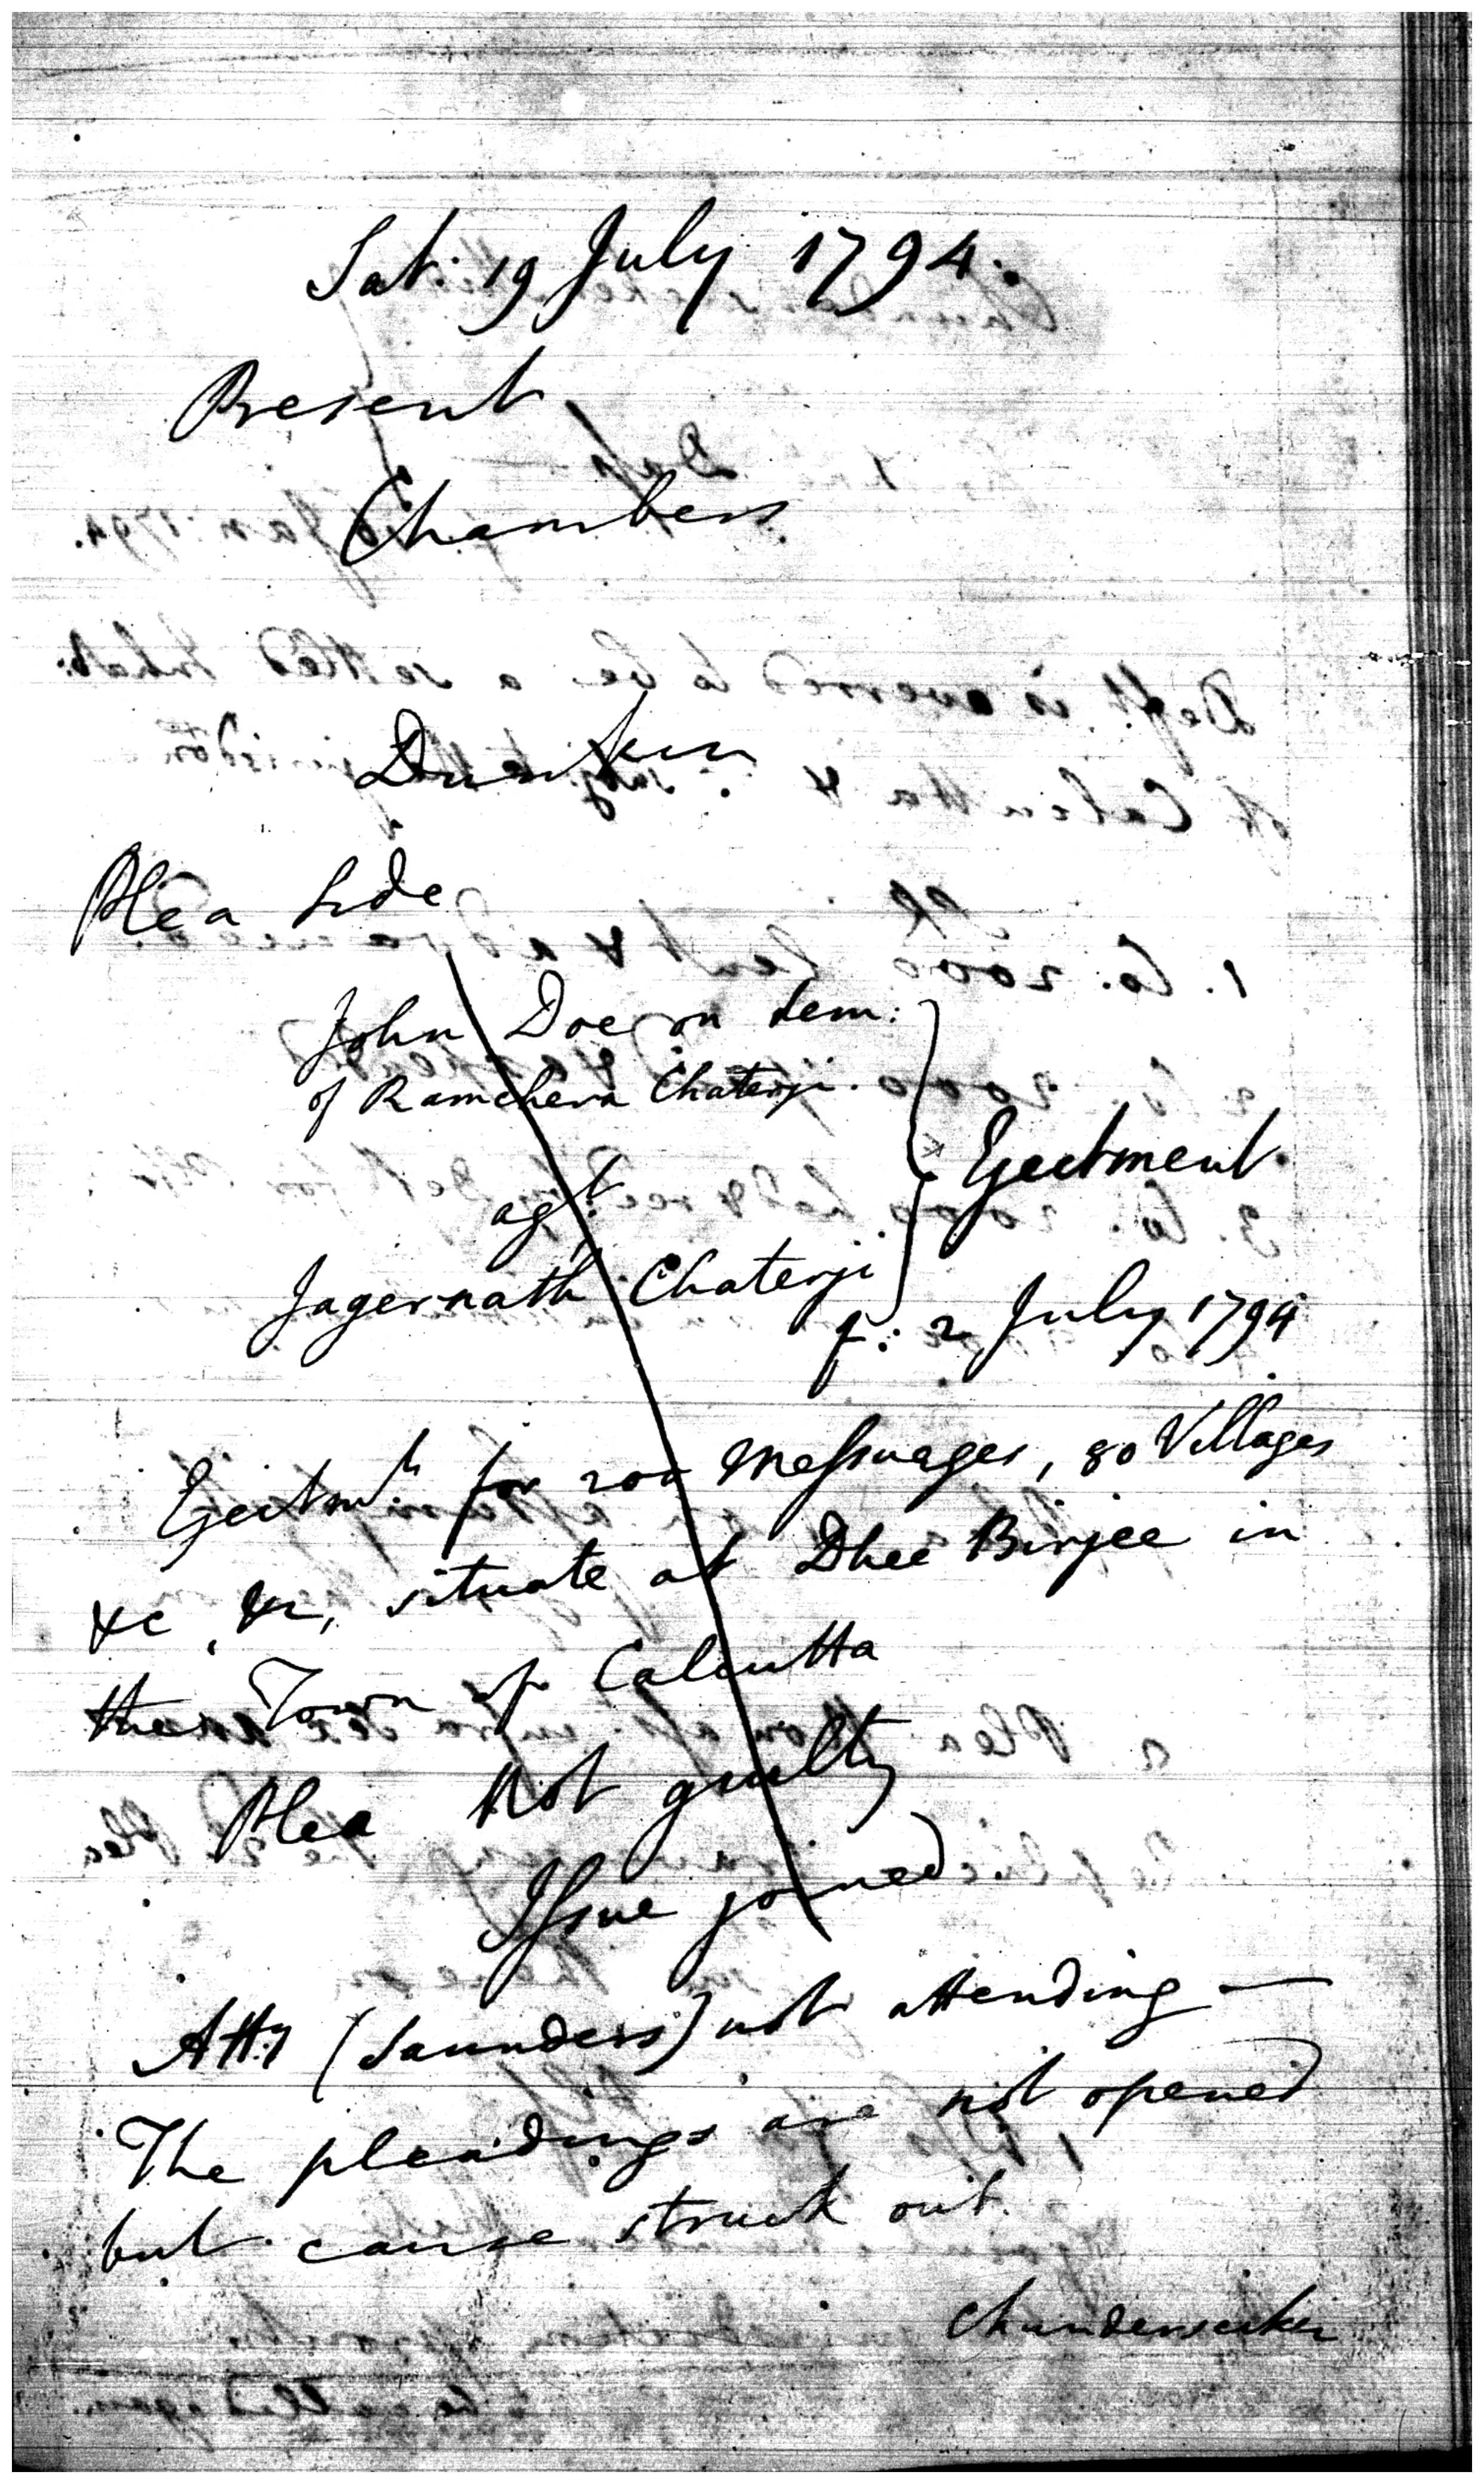 Sat: 19 July 1794.
Present
Chambers
Dunkin
Plea Side
John Doe on dem:
of Ramchera Chaterji
agt.
Jagernath Chaterji
Ejectment
f: 2 July 1794
Ejectmt. for 200 Messuages, 80 Villages
&c, &c, situate at Dhee Birjee in
the Town of Calcutta
Plea Not guilty
Issue joined.
Atty (Saunders) not attending —
The pleadings are not opened
but cause struck out.
Chunderseeker